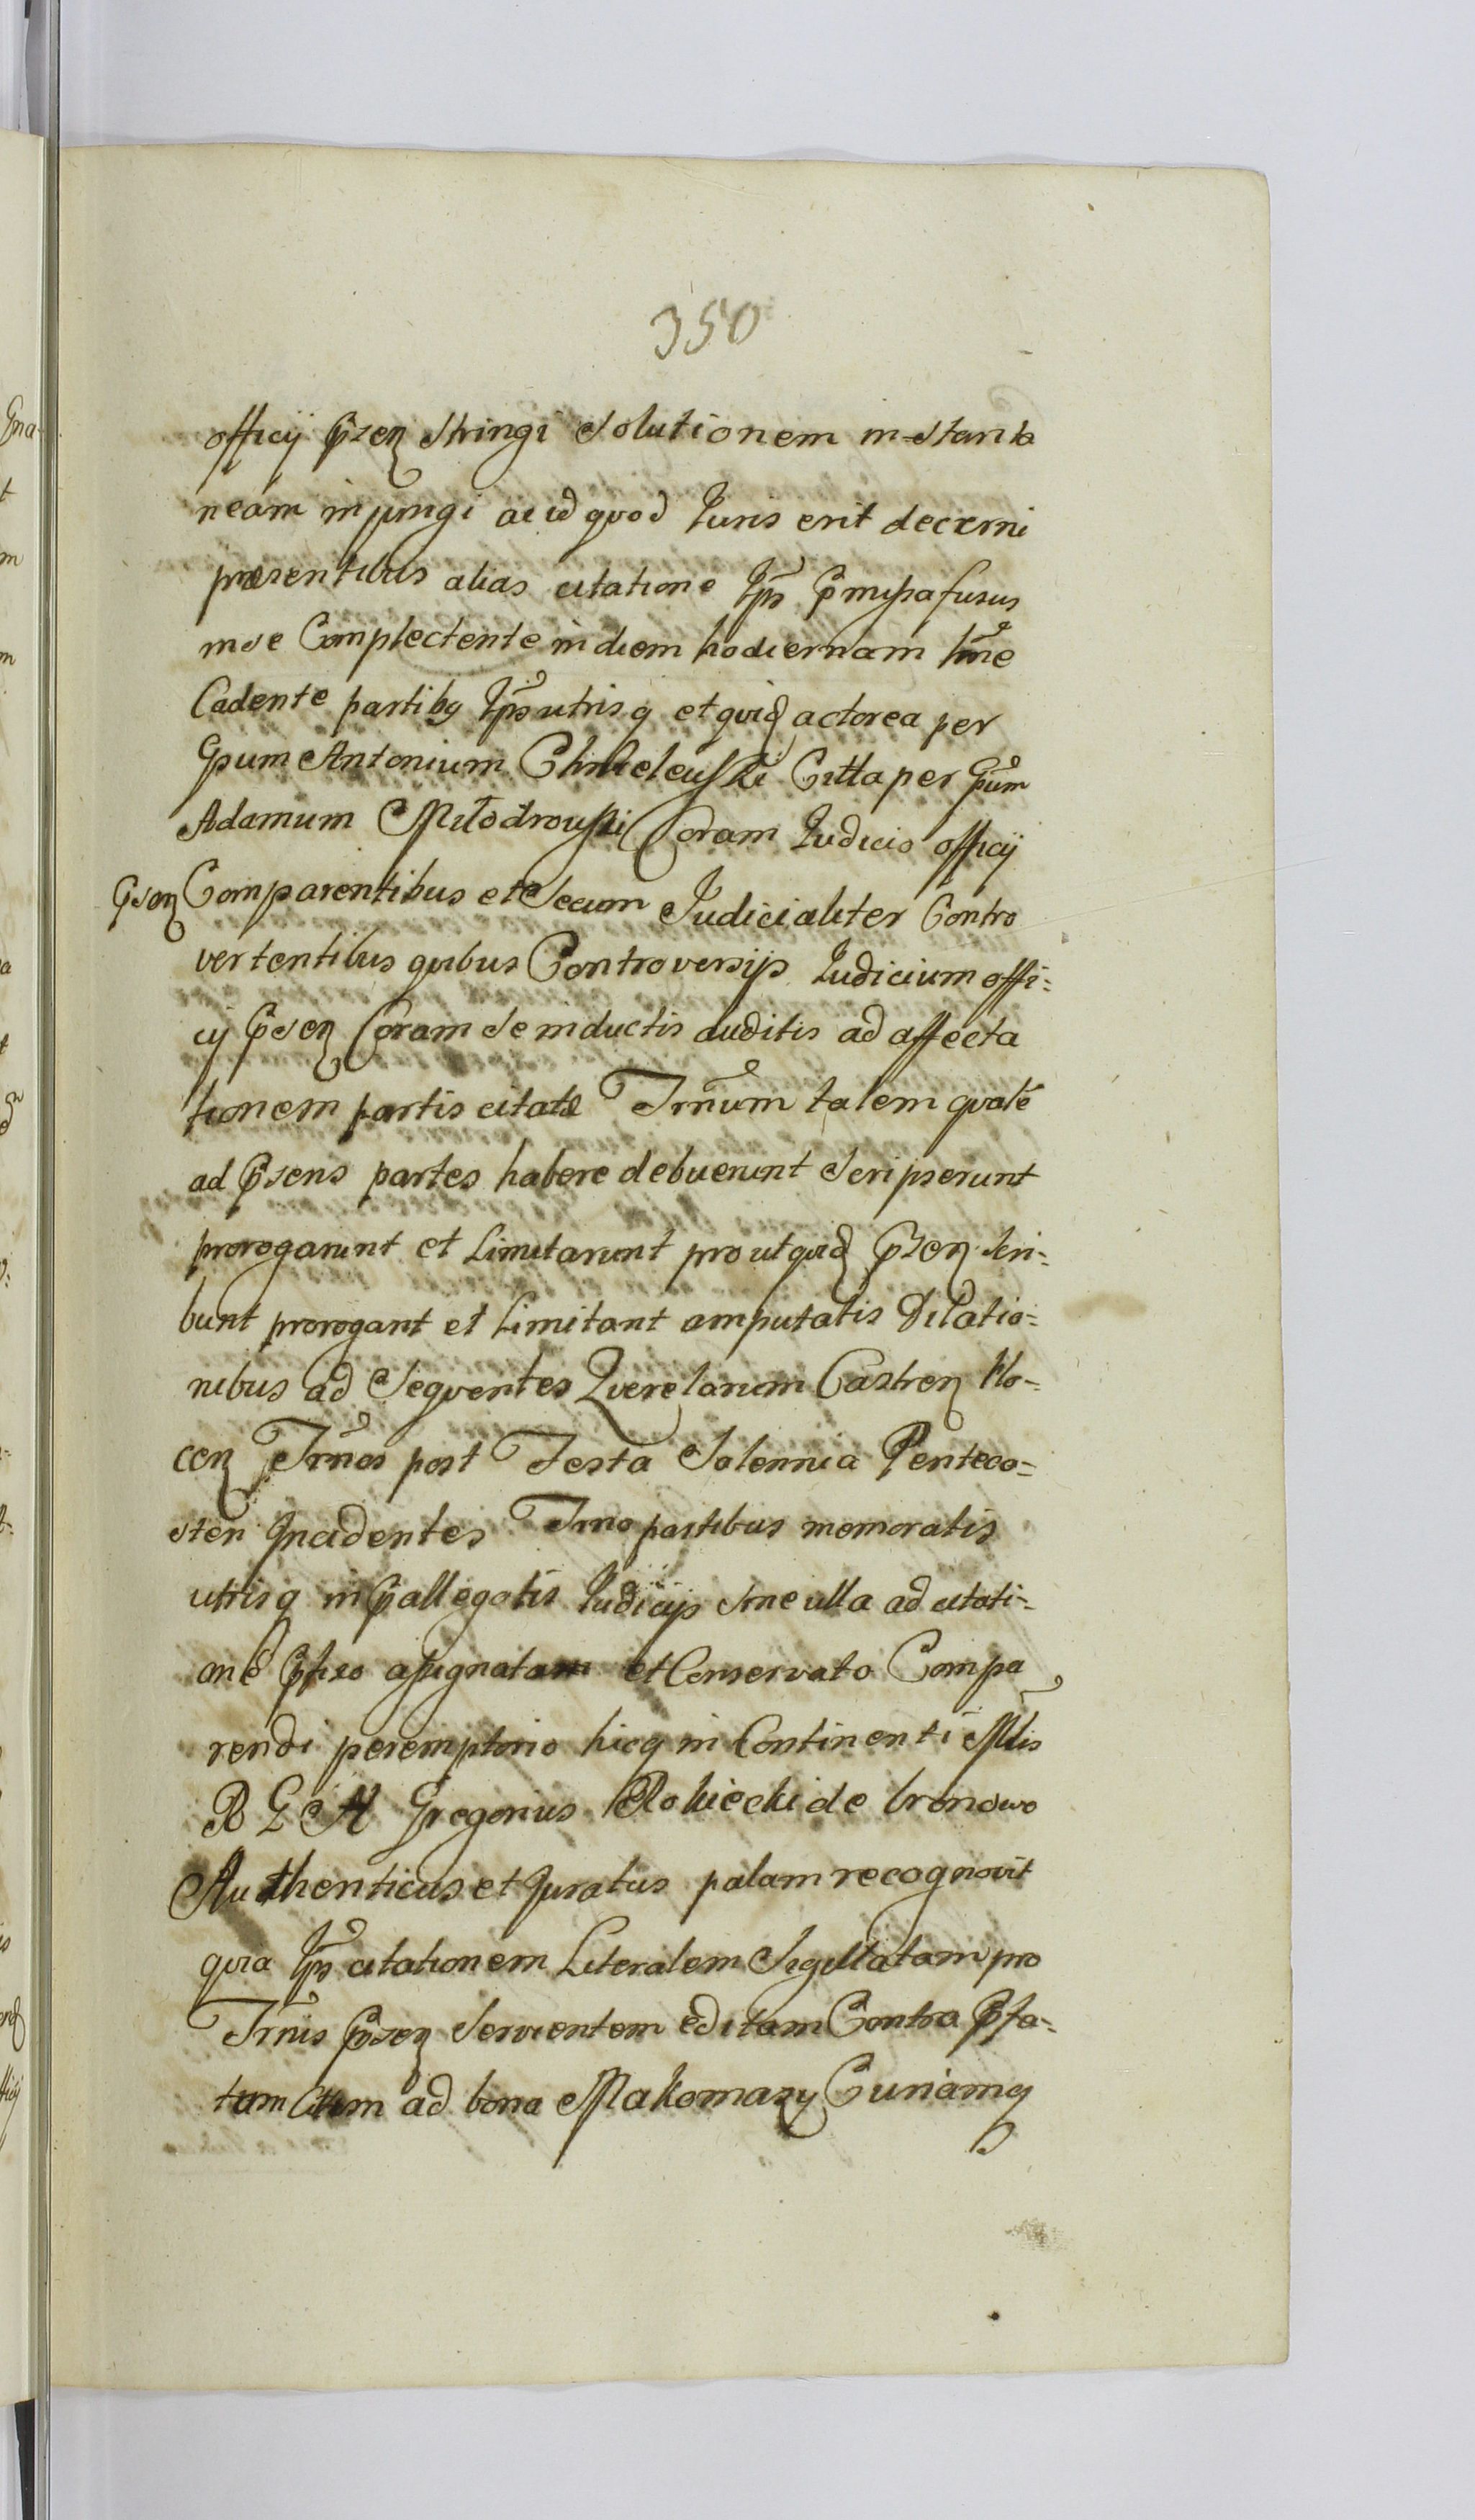 350
officij p̃sen stringi Solutionem in-stanta
neam injungi ac id quod Juris erit decerni
præsentibus alias citatione Jp̃s p̃missa fusius
in se Complectente in diem hodiernam
Cadente partibq Jp̃s utrisq et quid actorea per
Gsum Antonium Chmieleuski Citta per Gsũm
Adamum Młodzouski Coram Judicio officij
p̃sen Comparentibus et Secum Judicialiter Contro
vertentibus quibus Controversijs Judicium offi-
cij p̃sen Coram se inductis auditis ad affecta
tionem partis citatæ Trñum talem qualẽ
ad p̃sens partes habere debuerunt Scripserunt
prorogarunt et Limitarunt pro ut quid p̃sen scri-
bunt prorogant et Limitant amputatis Dilatio-
nibus ad Sequentes Querelarum Castren Plo-
cen Trños post Festa Solennia Penteco-
sten Incidentes Trno partibus memoratis
utrisq in p̃allegatis Judicijs sine ulla adcitati-
onẽ assignatam et Conservato Compa
rendi peremptorio hicq in Continenti Mlis
R G H Gregorius Rokicki de bronowo
Authenticus et Juratus palam recognovit
quia Jp̃s citationem Literalem Sigillatam pro
Trñis p̃sen Servientem editam Contra p̃fa-
tum Cttum ad bona Makomazy Curiamq